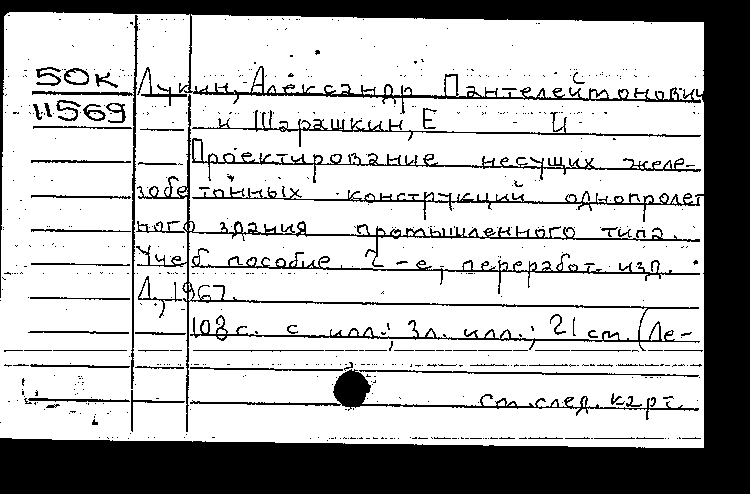 50к
11569
Лукин, Александр Пантелеймонович
и Шарашкин, Е И
Проектирование несущих желе-
зобетонных конструкций однопролет
ного здания промышленного типа.
Учеб. пособие. 2-е, переработ. изд.
Л., 1967.
108 с. с илл.; 3 л. илл.; 21 см. (Ле-
см. след. карт.